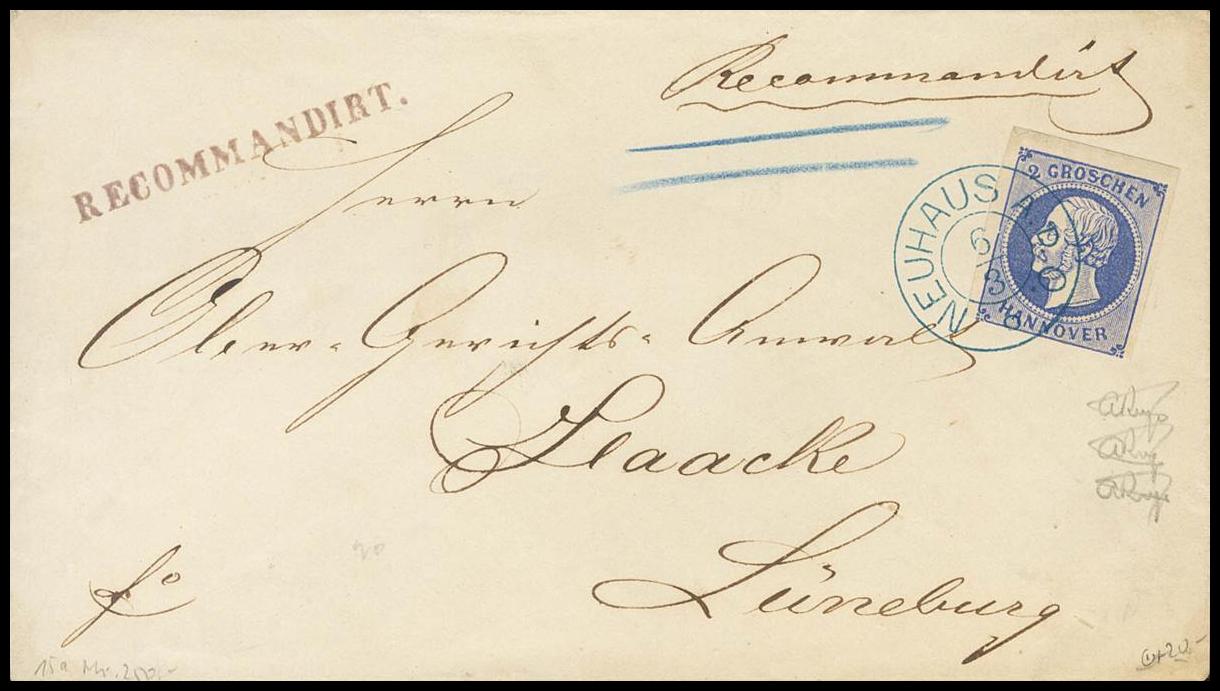 Recommandirt
RECOMMANDIRT.
2 GROSCHEN
HANNOVER
NEUHAUS A. D. O.
6
3
Herrn
Ober-Gerichts-Anwalt
Haacke
Lüneburg
fo